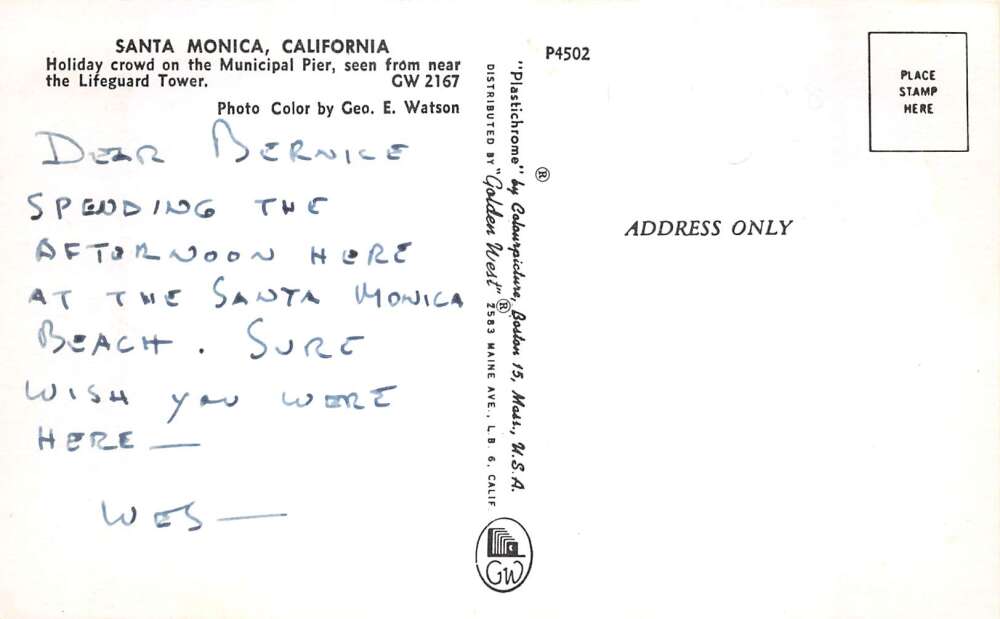 SANTA MONICA, CALIFORNIA
Holiday crowd on the Municipal Pier, seen from near
the Lifeguard Tower. GW 2167
Photo Color by Geo. E. Watson
DEAR BERNICE
SPENDING THE
AFTERNOON HERE
AT THE SANTA MONICA
BEACH. SURE
WISH YOU WERE
HERE —
WES —
"Plastichrome" ® by Colourpicture, Boston 15, Mass., U.S.A.
DISTRIBUTED BY "Golden West" ® 2583 MAINE AVE., L.B. 6, CALIF.
GW
P4502
PLACE
STAMP
HERE
ADDRESS ONLY